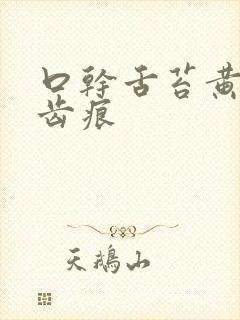 口幹舌苔黄
齿痕
天鹅山